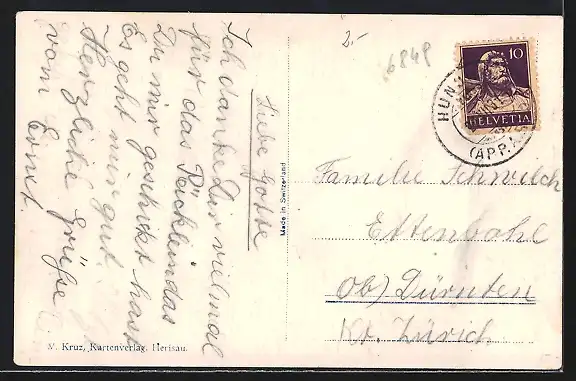 Liebe Gotte
Ich danke Dir vielmal
für das Päcklein das
Du mir geschickt hast
Es geht mir gut.
Herzliche Grüße
vom Ernst.
Made in Switzerland
M. Kruz, Kartenverlag, Herisau.
2.-
6848
10
HELVETIA
HUN
(APP.
Familie Schwilch
Ettenbohl
Ob) Dürnten
Kt. Zürich